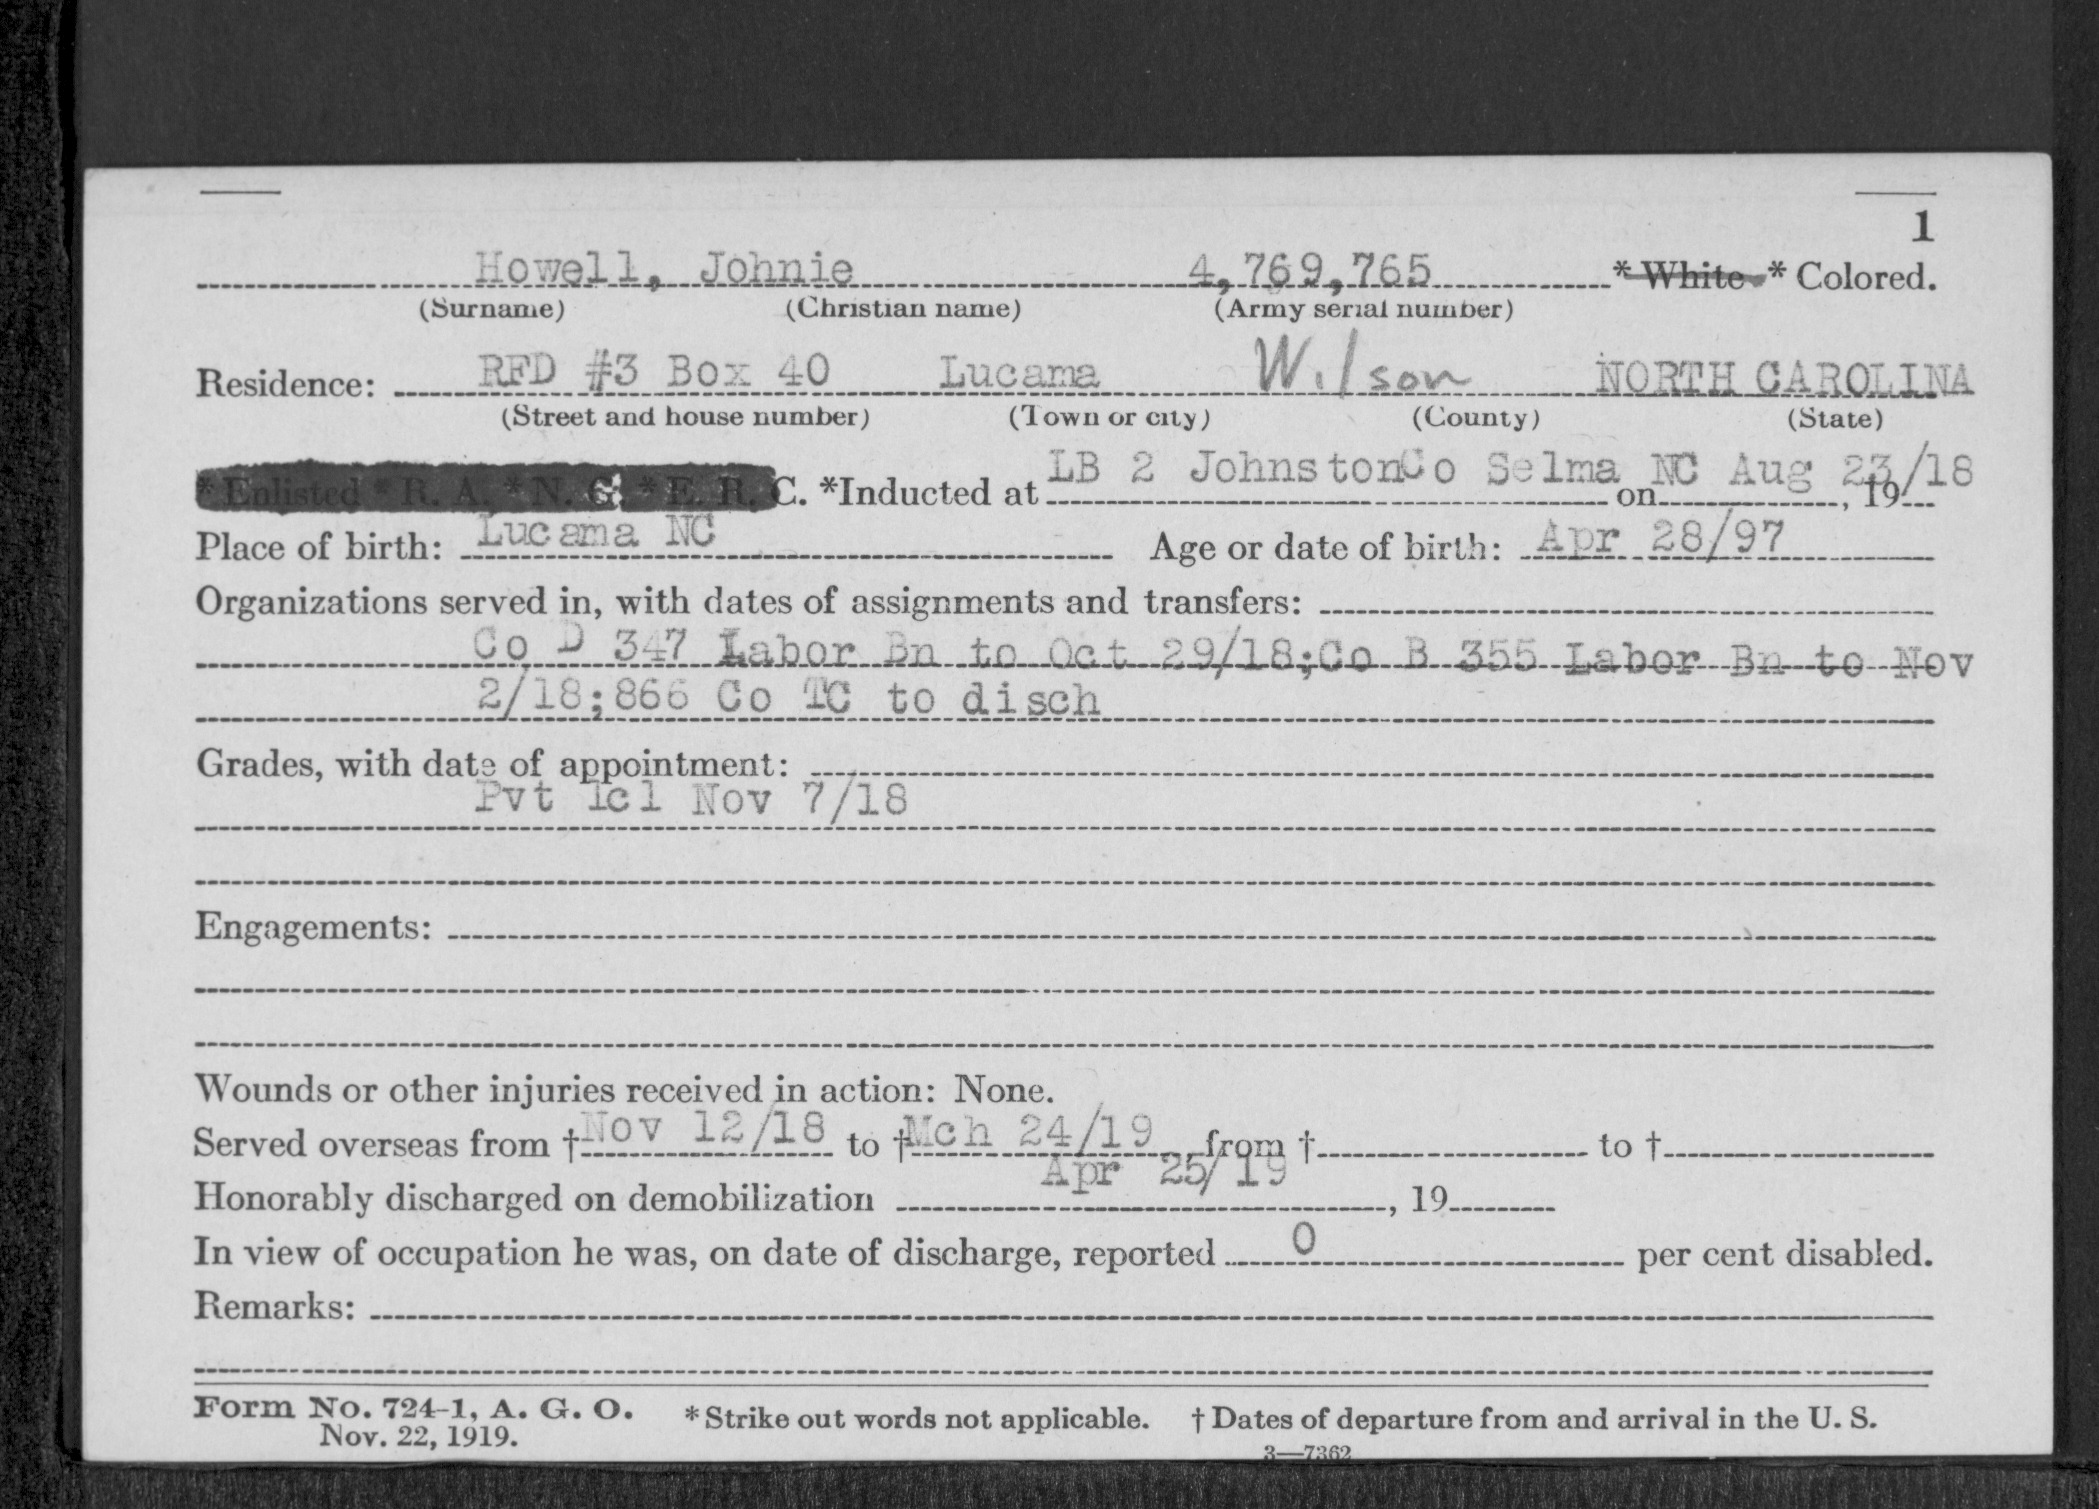 1
Howell, Johnie 4,769,765 * White * Colored.
(Surname) (Christian name) (Army serial number)
Residence: RFD #3 Box 40 Lucama Wilson NORTH CAROLINA
(Street and house number) (Town or city) (County) (State)
* Enlisted * R. A. * N. G. * E. R. C. *Inducted at LB 2 JohnstonCo Selma NC on Aug 23/18, 19
Place of birth: Lucama NC Age or date of birth: Apr 28/97
Organizations served in, with dates of assignments and transfers:
Co D 347 Labor Bn to Oct 29/18;Co B 355 Labor Bn to Nov
2/18;866 Co TC to disch
Grades, with date of appointment:
Pvt 1cl Nov 7/18
Engagements:
Wounds or other injuries received in action: None.
Served overseas from † Nov 12/18 to † Mch 24/19 from † to †
Honorably discharged on demobilization Apr 25/19, 19
In view of occupation he was, on date of discharge, reported 0 per cent disabled.
Remarks:
Form No. 724-1, A. G. O. * Strike out words not applicable. † Dates of departure from and arrival in the U. S.
Nov. 22, 1919.
3—7362